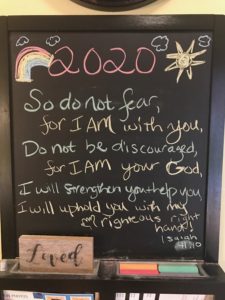 2020
So do not fear,
for I AM with you,
Do not be discouraged,
for I AM your God,
I will strengthen you & help you
I will uphold you with my
righteous right
hand!
Isaiah
41:10
Loved